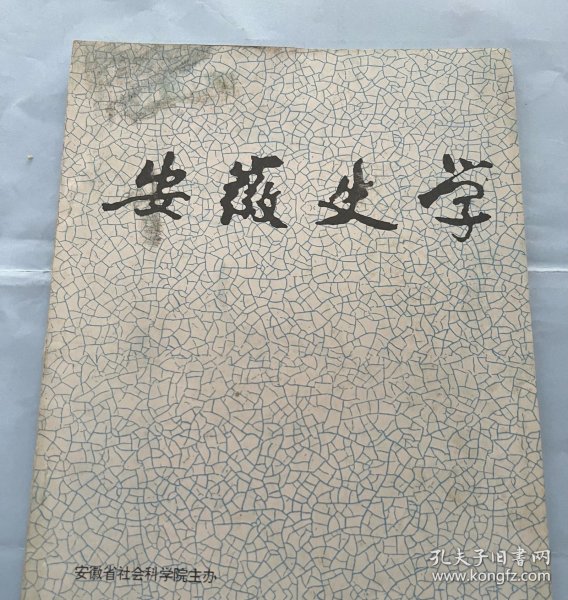 安徽史学
安徽省社会科学院主办
孔夫子旧书网
www.kongfz.com